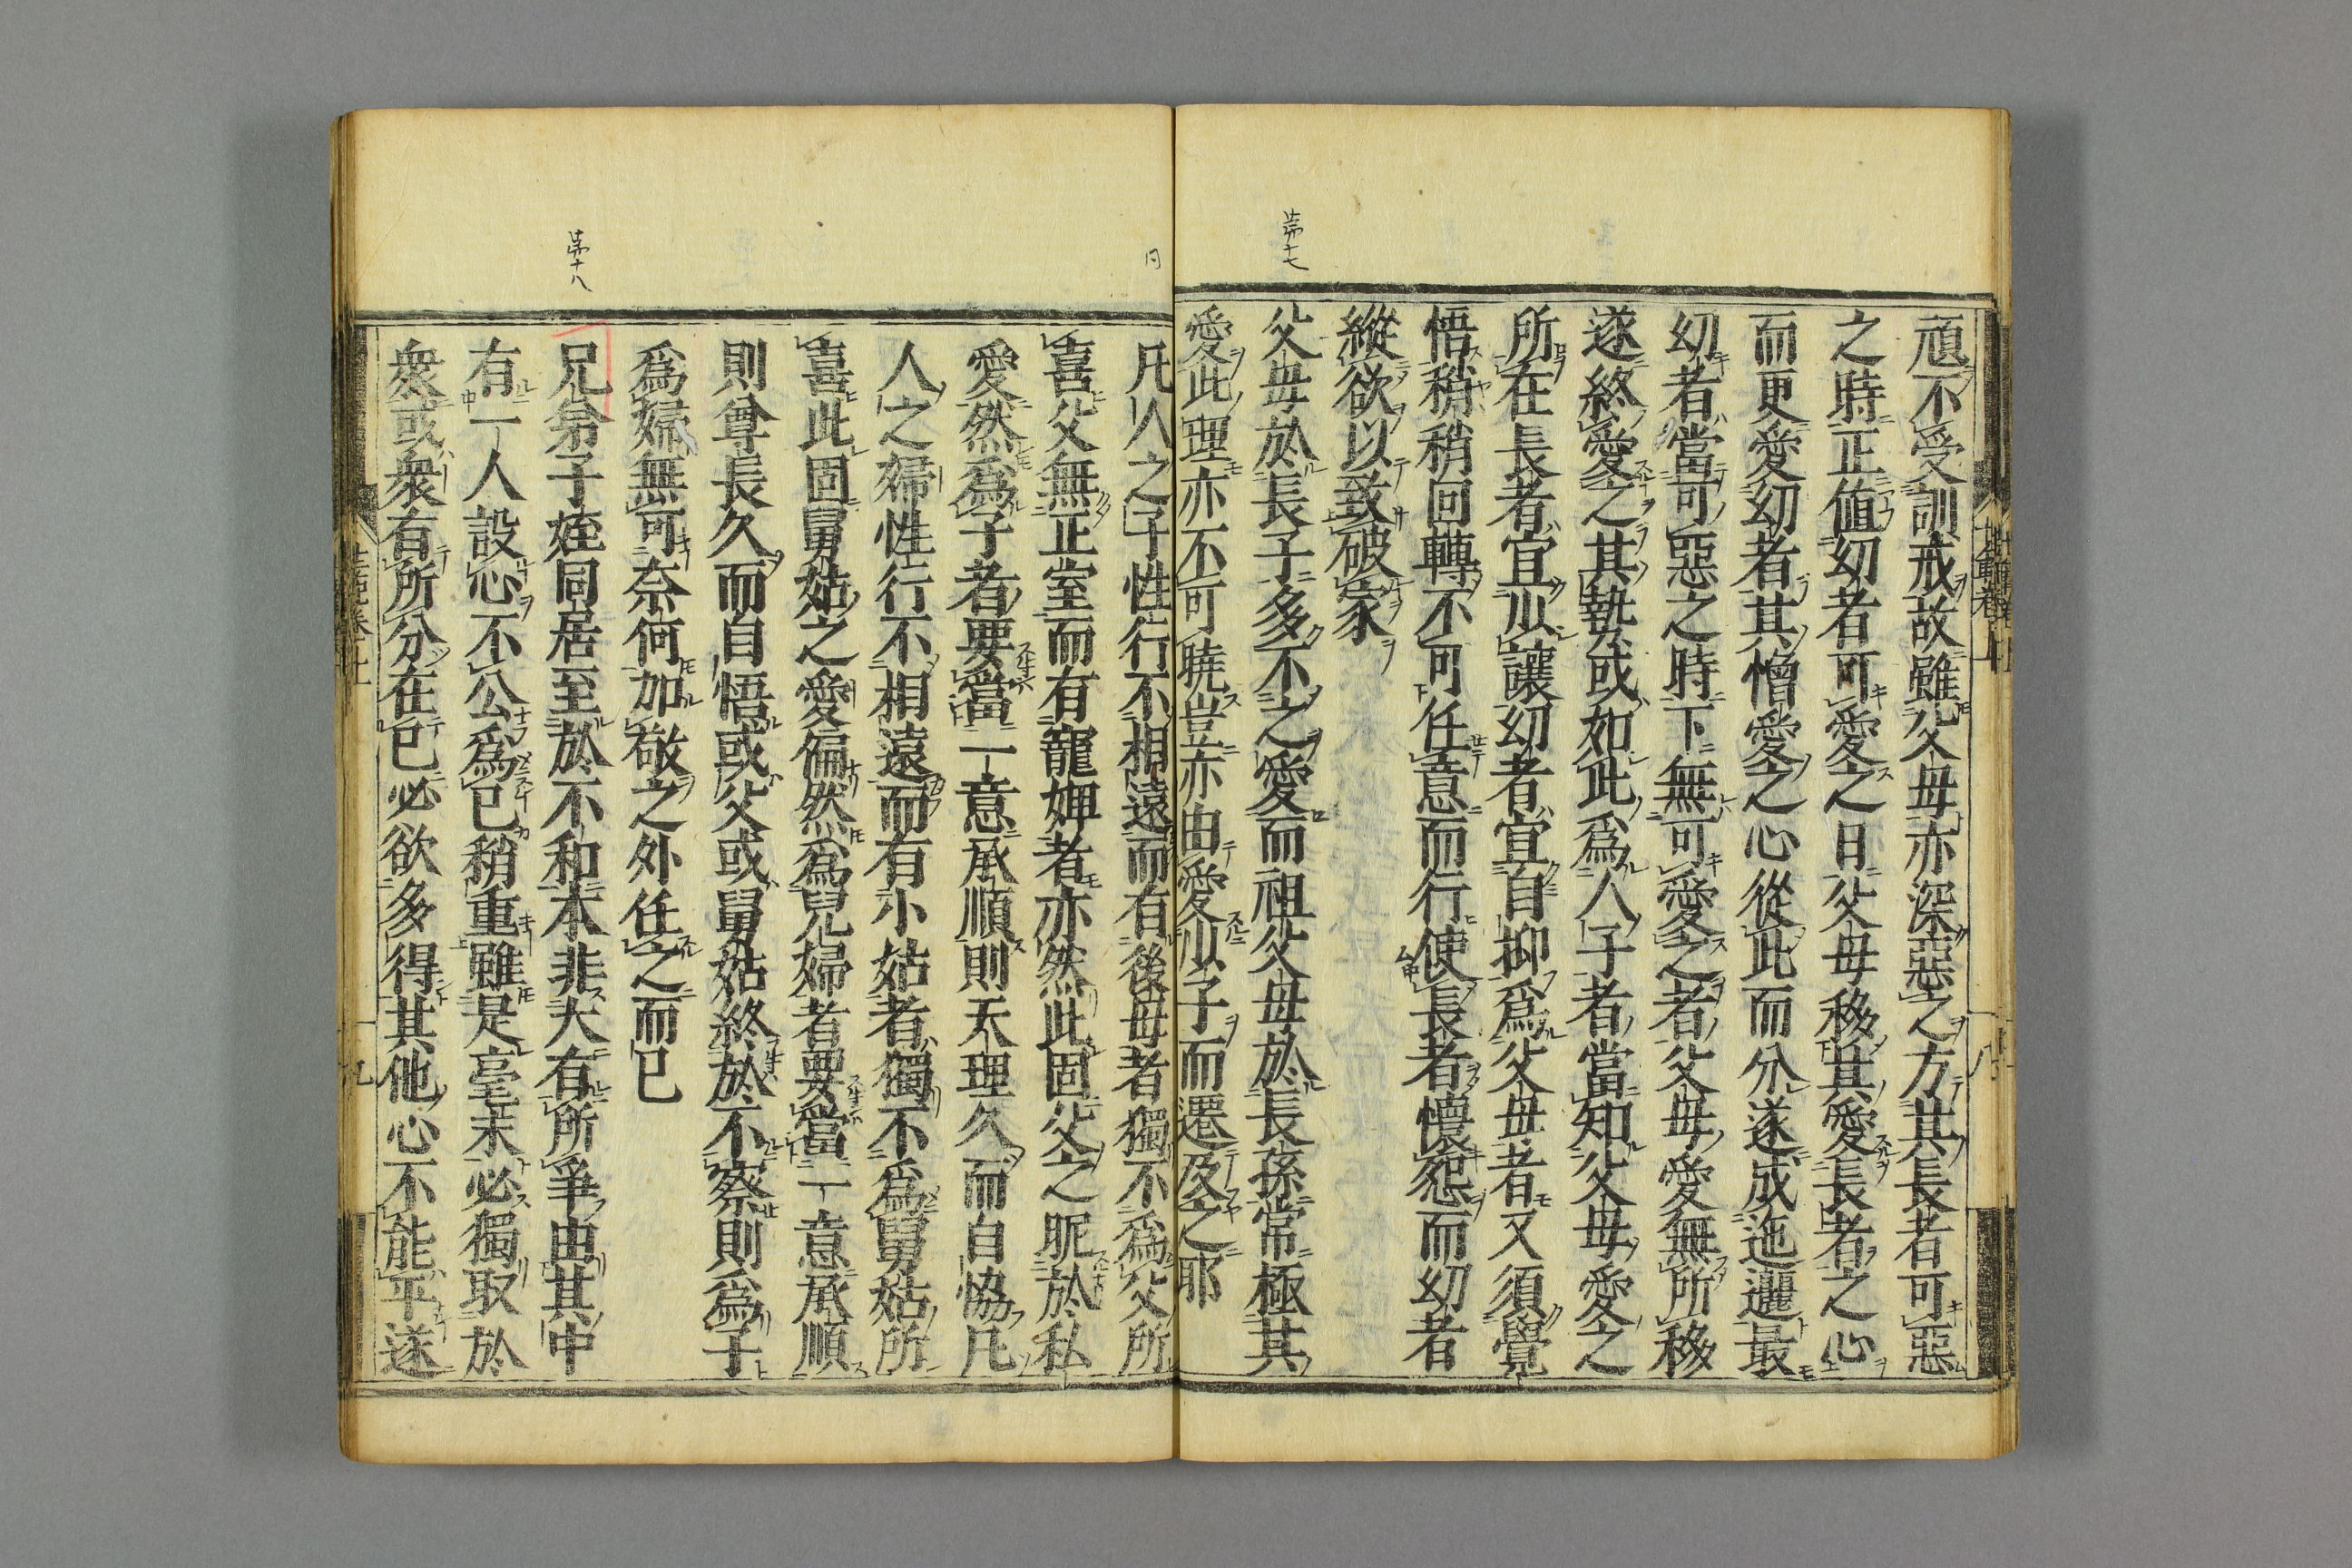 第十七
頑不受訓戒故雖父母亦深惡之方其長者可惡
之時正値幼者可愛之日父母移其愛長者之心
而更愛幼者其憎愛之心從此而分遂成迤邐最
幼者當可惡之時下無可愛之者父母愛無所移
遂終愛之其勢或如此爲人子者當知父母愛之
所在長者宜少讓幼者宜自抑爲父母者又須覺
悟稍稍回轉不可任意而行使長者懷怨而幼者
縱欲以致破家
父母於長子多不之愛而祖父母於長孫常極其
愛此理亦不可曉豈亦由愛少子而遷及之耶
第十八
凡人之子性行不相遠而有後母者獨不爲父所
喜父無正室而有寵婢者亦然此固父之昵於私
愛然爲子者要當一意承順則天理久而自協凡
人之婦性行不相遠而有小姑者獨不爲舅姑所
喜此固舅姑之愛偏然爲兒婦者要當一意承順
則尊長久而自悟或父或舅姑終於不察則爲子
爲婦無可奈何加敬之外任之而已
兄弟子姪同居至於不和本非大有所爭由其中
有一人設心不公爲已稍重雖是毫末必獨取於
衆或衆有所分在已必欲多得其他心不能平遂